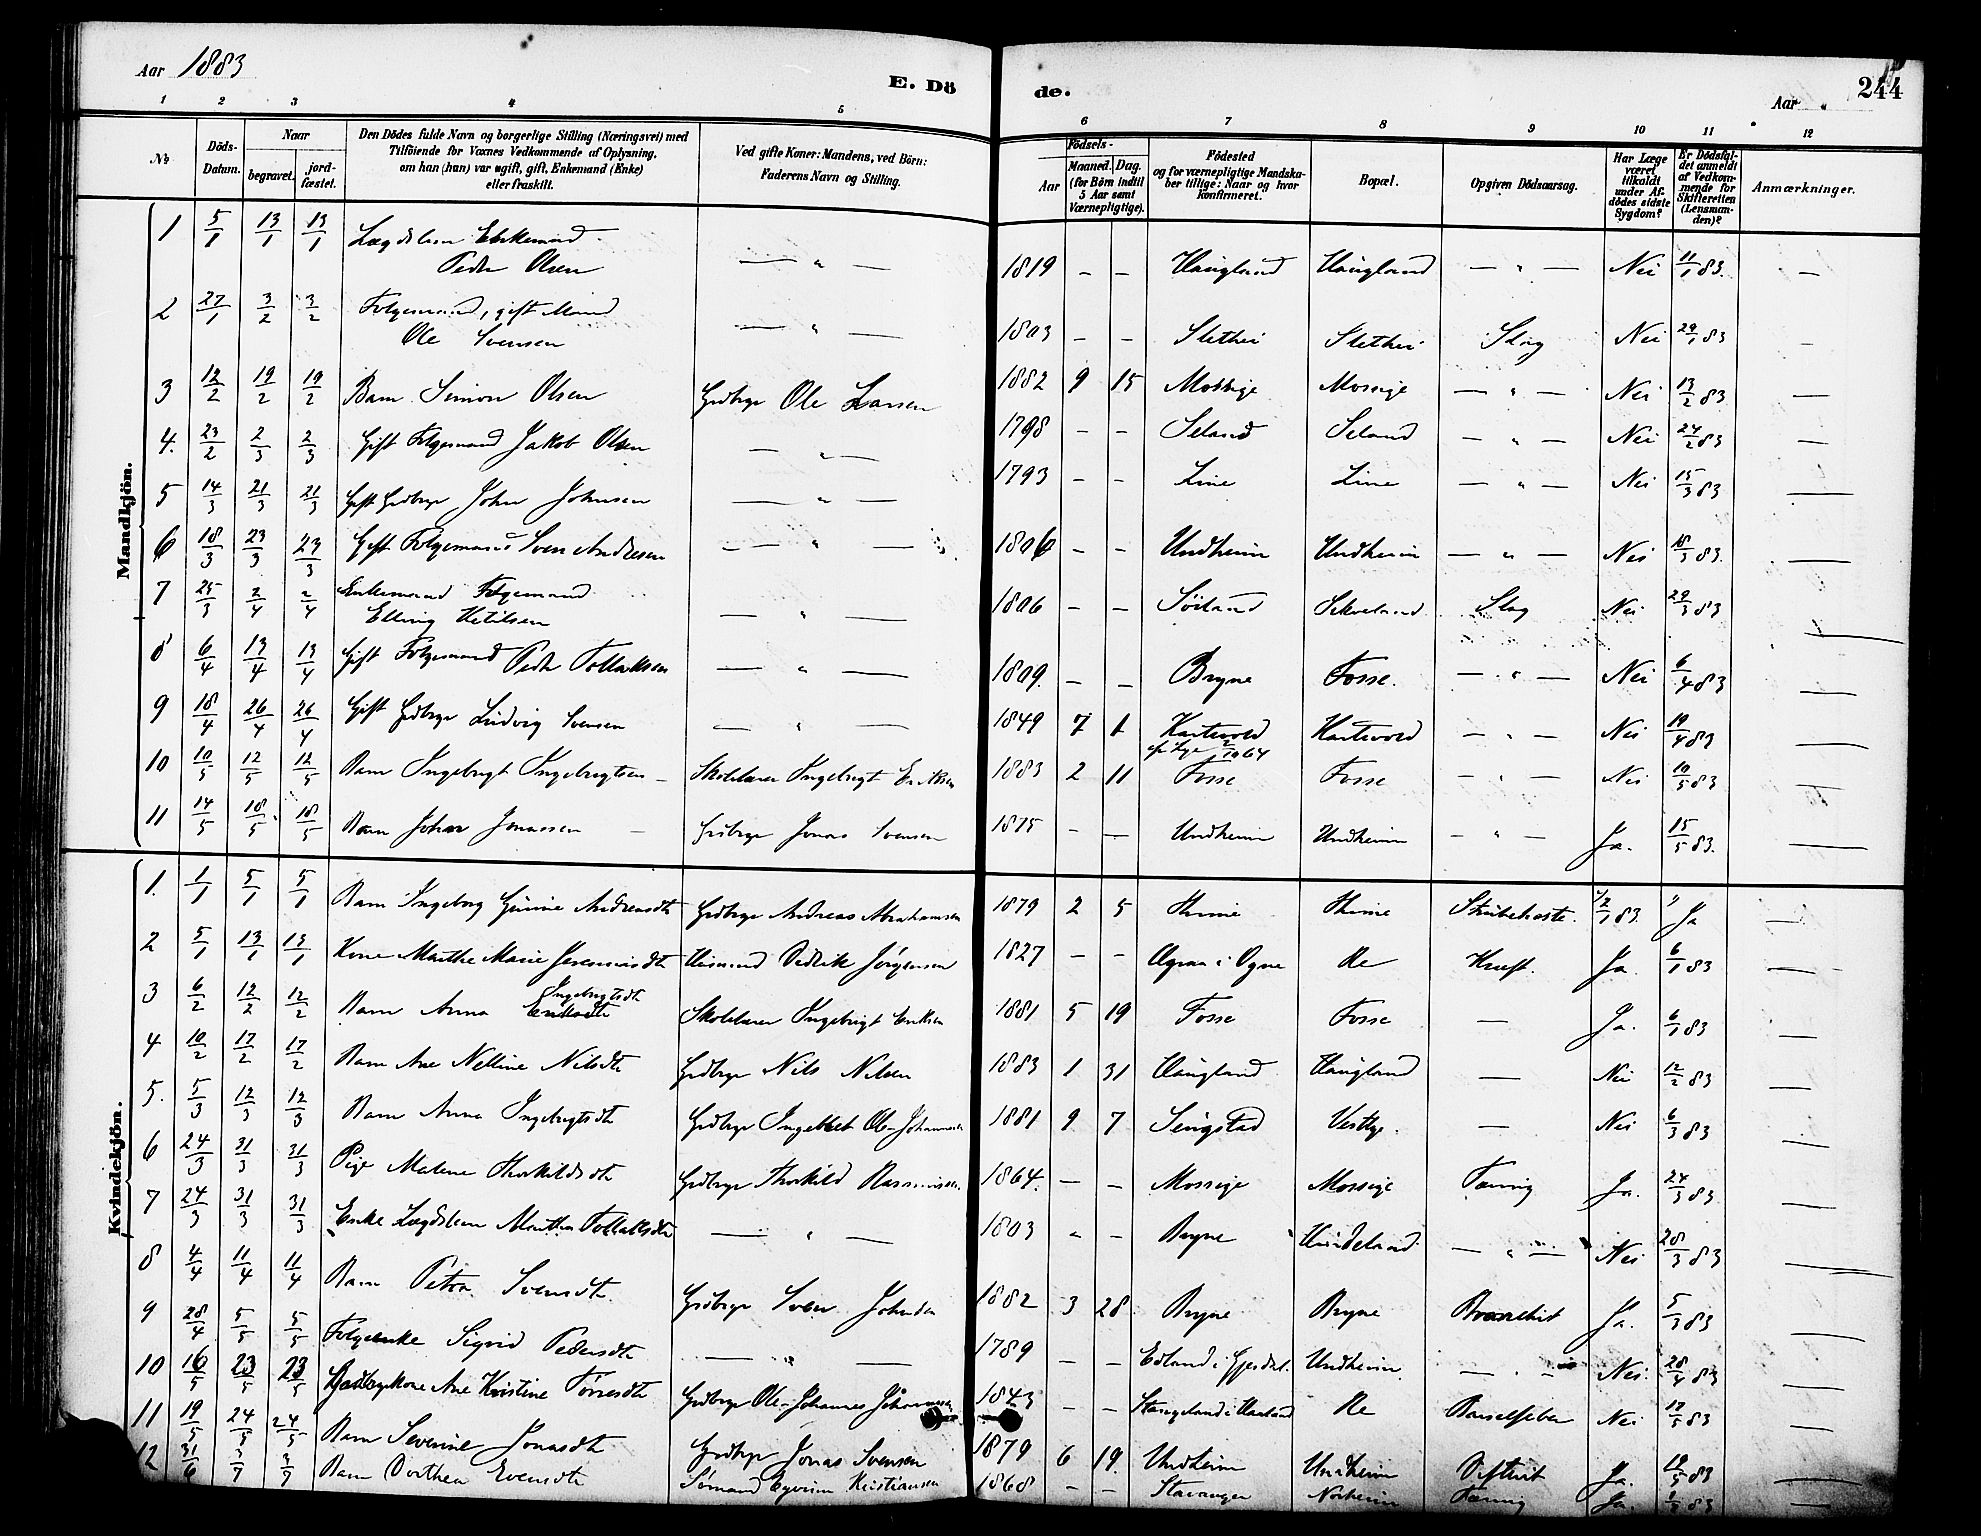 Aar 1883
E. Dö
de.
Aar
244
1 2 3 4 5 6 7 8 9 10 11 12
No
Döds-Datum.
Naar
begravet.
jord-fæstet.
Den Dödes fulde Navn og borgerlige Stilling (Næringsvei) med
Tilföiende for Voxnes Vedkommende af Oplysning,
om han (hun) var ugift, gift, Enkemand (Enke)
eller fraskilt.
Ved gifte Koner: Mandens, ved Börn:
Faderens Navn og Stilling.
Födsels-
Aar
Maaned. Dag.
(for Börn indtil
5 Aar samt
Værnepligtige).
Födested
og for værnepligtige Mandska-
ber tillige: Naar og hvor
konfirmeret.
Bopæl.
Opgiven Dödsaarsag.
Har Læge
været
tilkaldt
under Af-
dödes sidste
Sygdom?
Er Dödsfal-
det anmeldt
af Vedkom-
mende for
Skifteretten
(Lensman-
den)?
Anmærkninger.
Mandkjön.
1 5/1 13/1 13/1 Lægdslem Enkemand
Peder Olsen — " — 1819 – – Haugland Haugland — " — Nei 11/1 83. —
2 27/1 3/2 3/2 Folgemand, gift Mand
Ole Svensen — " — 1803 – – Slethei Slethei Slag Nei 29/1 83 —
3 12/2 19/2 19/2 Barn Simon Olsen Grdbrgr Ole Larsen 1882 9 15 Mossige Mossige — " — Nei 13/2 83 —
4. 23/2 2/3 2/3 Gift Folgemand Jakob Olsen — " — 1798 – – Seland Seland — " — Nei 24/2 83 —
5 14/3 21/3 21/3 Gift Grdbrgr John Johnsen — " — 1793 – – Line Line — " — Nei 15/3 83 —
6 18/3 23/3 23/3 Gift Folgemand Sven Andresen — " — 1806 – – Undheim Undheim — " — Nei 18/3 83. —
7 25/3 2/4 2/4 Enkemand Folgemand
Elling Ketilsen — " — 1806 – – Sörland Slag Nei 29/3 83 —
8 6/4 13/4 13/4 Gift Folgemand Peder Tollaksen — " — 1809. – – Bryne Fosse. — " — Nei 6/4 83 —
9 18/4 26/4 26/4 Gift Grdbrgr Ludvig Svensen — " — 1849 7 1 Hartevold Hartevold — " — Nei 19/4 83 —
10 10/5 12/5 12/5 Barn Ingebrigt Ingebrigtsen — Skolelærer Ingebrigt Eriksen 1883 2 11 Fosse Fosse — " — Nei 10/5 83 —
11 14/5 18/5 18/5 Barn Johan Jonassen — Grdbrgr Jonas Svensen 1875 – – Undheim Undheim — " — Ja. 15/5 83. —
Kvindekjön.
1. 1/1 5/1 5/1 Barn Ingeborg Gurine Andreasdtr Grdbrgr Andreas Abrahamsen 1879 2 5 Hime Hime Strubehoste. 2/1 83. " Ja —
2 5/1 13/1 13/1 Kone Marthe Marie Huusmand Didrik Jörgensen 1827 – – i Ogne Re Kræft. Ja. 6/1 83 —
3 6/2 12/2 12/2 Barn Anna Ingebrigtsdtr Skolelærer Ingebrigt Eriksen 1881 5 19 Fosse Fosse — Ja. 6/1 83 —
4 10/2 17/2 17/2 Barn Ane Nelline Nilsdtr Grdbrgr Nils Nilsen 1883 1 31 Haugland Haugland — Nei 12/2 83 —
5. 5/3 12/3 12/3 Barn Anna Ingebrigtsdtr Grdbrgr 1881 9 7 Vestly. — Nei 6/3 83 —
6 24/3 31/3 31/3 Pige Malene Thorkildsdtr Grdbrgr Thorkild Rasmussen 1864. – – Mossige Mossige Tæring Ja. 24/3 83. —
7 24/3 31/3 31/3 Enke Lægdslem Martha Tollaksdtr — " — 1803 – – Bryne — " — Nei 28/3 83 —
8 4/4 11/4 11/4 Barn Petra Svensdtr. Grdbrgr Sven Johnsen 1882 3 28 Bryne Bryne Ja. 5/3 83 —
9 28/4 5/5 5/5 Folgeenke Sigrid Pedersdtr — " — 1789 – – Edland i Gjesdal. Undheim — " — Nei. 28/4 83 —
10 16/5 23/5 23/5 Grdbrgkone Ane Kristine Grdbrgr Ole Johannes 1843 – – Re Barselfeber Nei 17/5 83 —
11 19/5 24/5 24/5 Barn Severine Jonasdtr Grdbrgr Jonas Svensen 1879 6 19. Undheim Undheim Difterit Ja. 19/5 83 —
12 31/6 3/7 3/7 Barn Dorthea Svensdtr Sömand Kristiansen 1868 – – Stavanger Norheim Tæring Ja. —